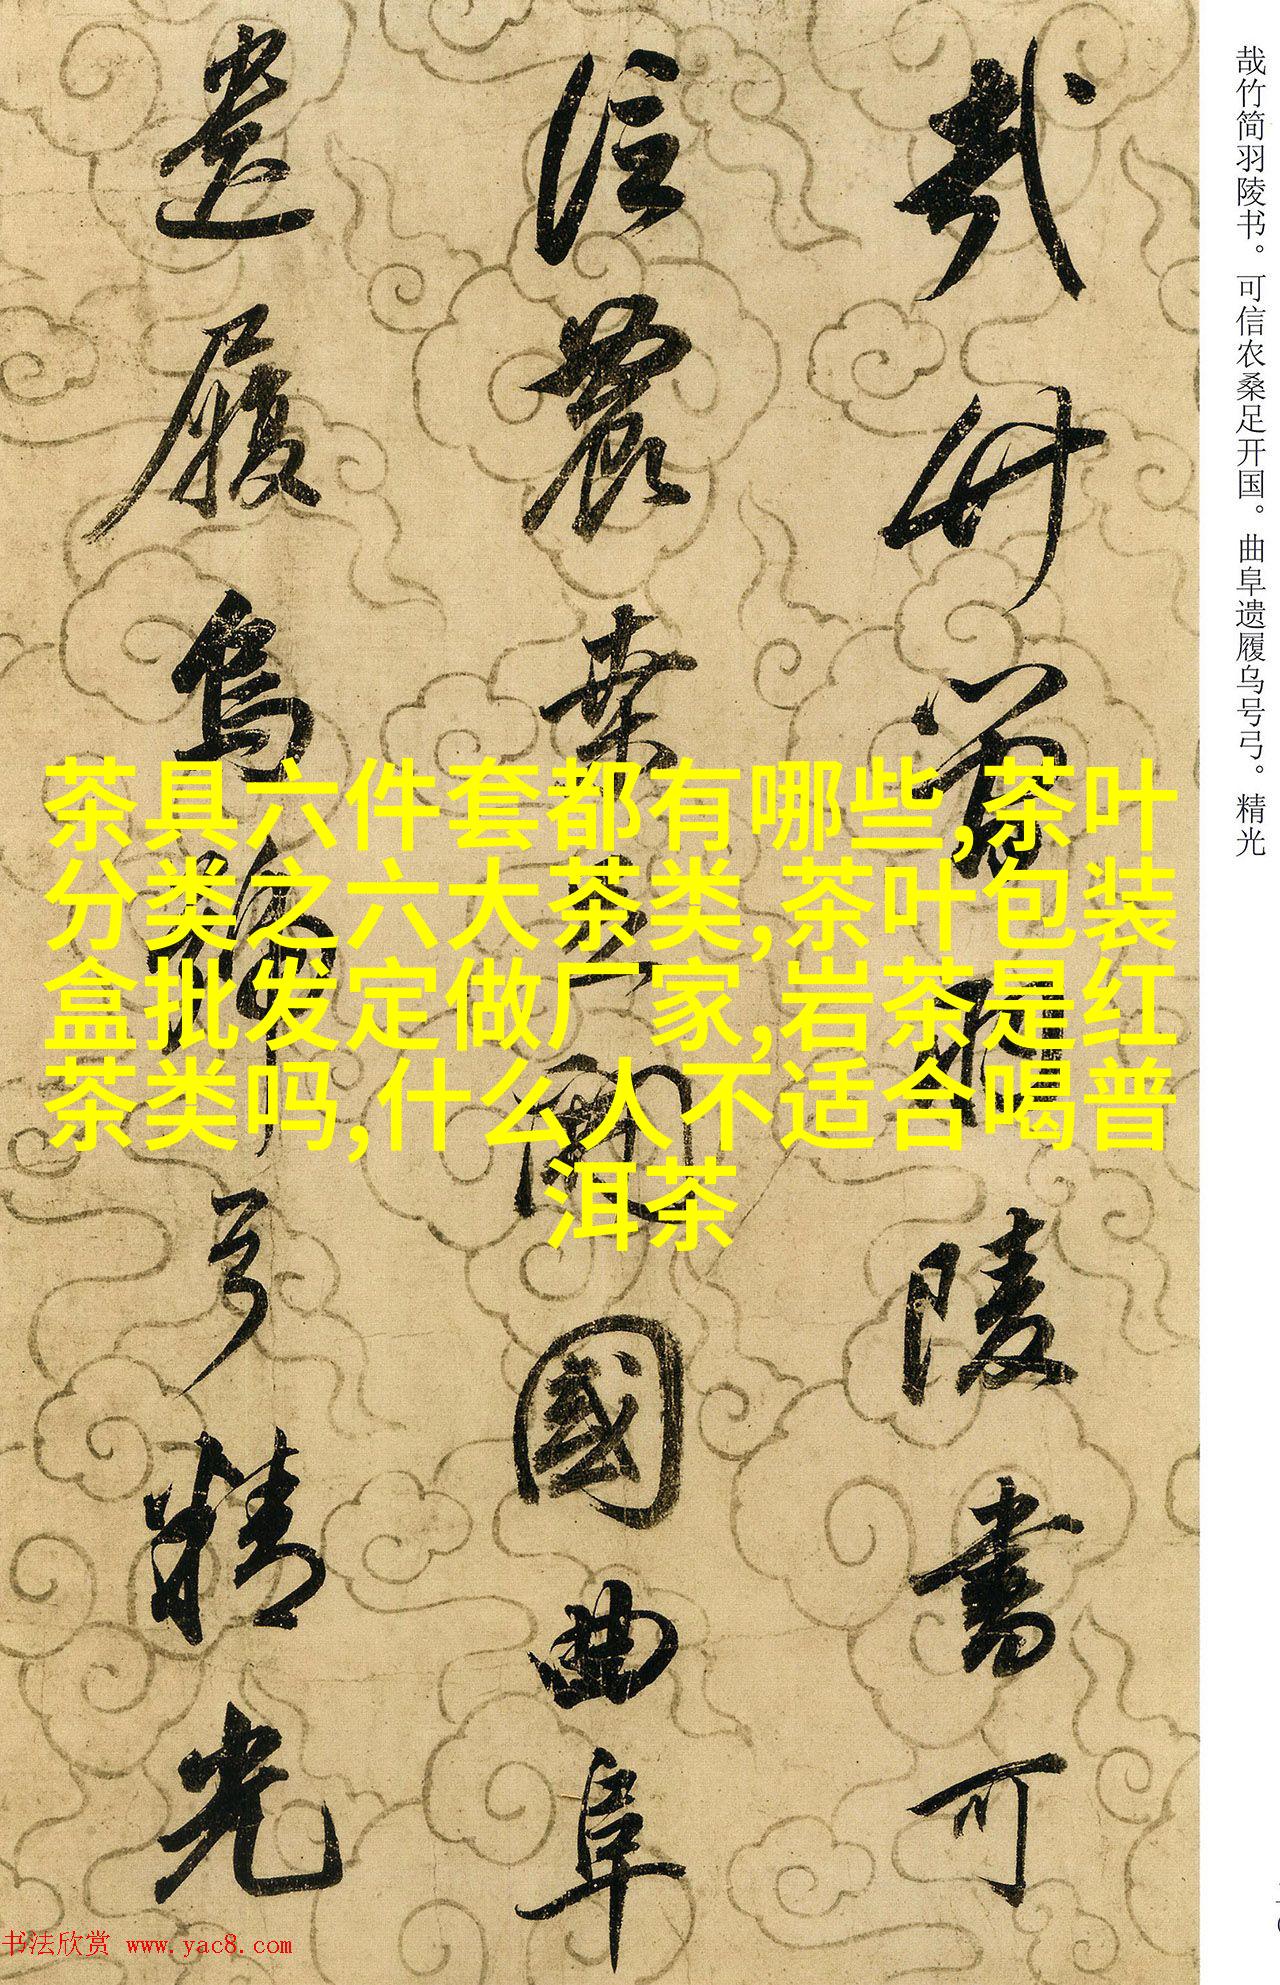 哉竹简羽陵书。可信农桑足开国。曲阜遗履乌号弓。精光
哉竹蕳羽陵書可
信農桒足開國曲阜
遺履烏號弓精光
茶具六件套都有哪些,茶叶
分类之六大茶类,茶叶包装
盒批发定做厂家,岩茶是红
茶类吗,什么人不适合喝普
洱茶
书法欣赏 www.yac8.com